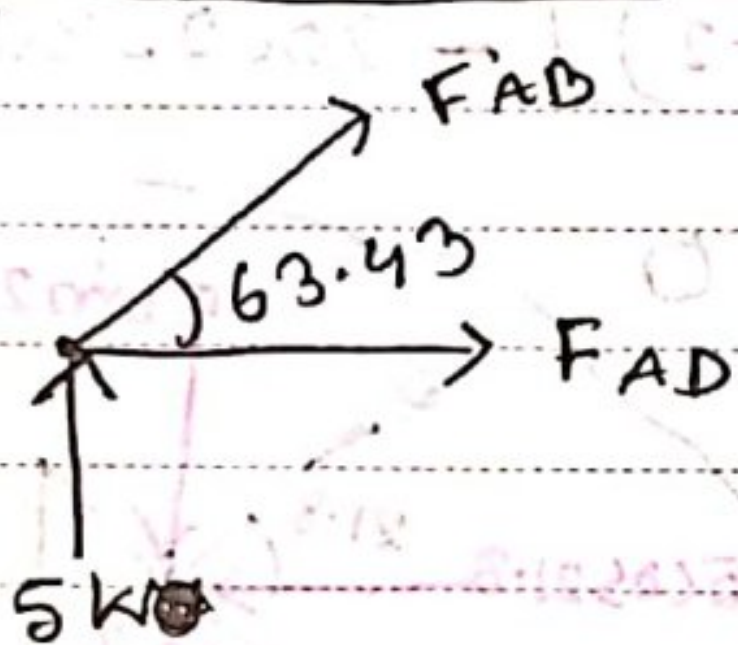 FAB
63.43
FAD
5 k